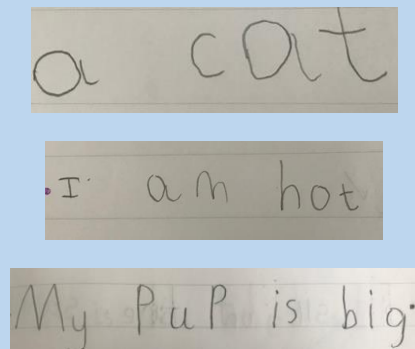 a cat
I am hot
My PuP is big.